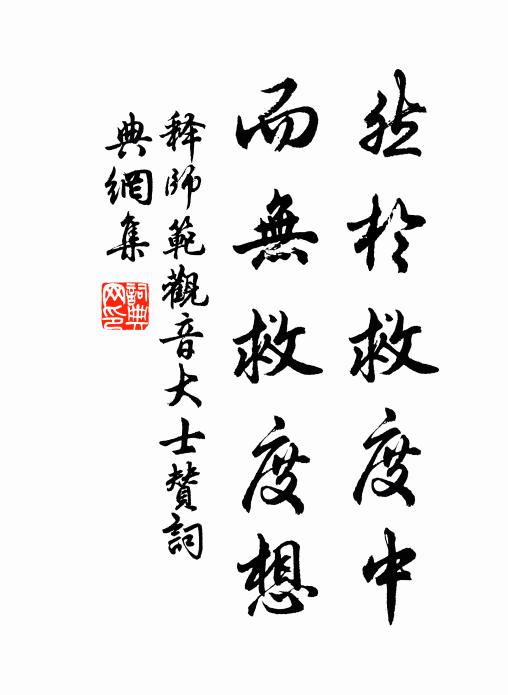 然於救度中
而無救度想
释師範觀音大士贊詞
典網集
詞典网印